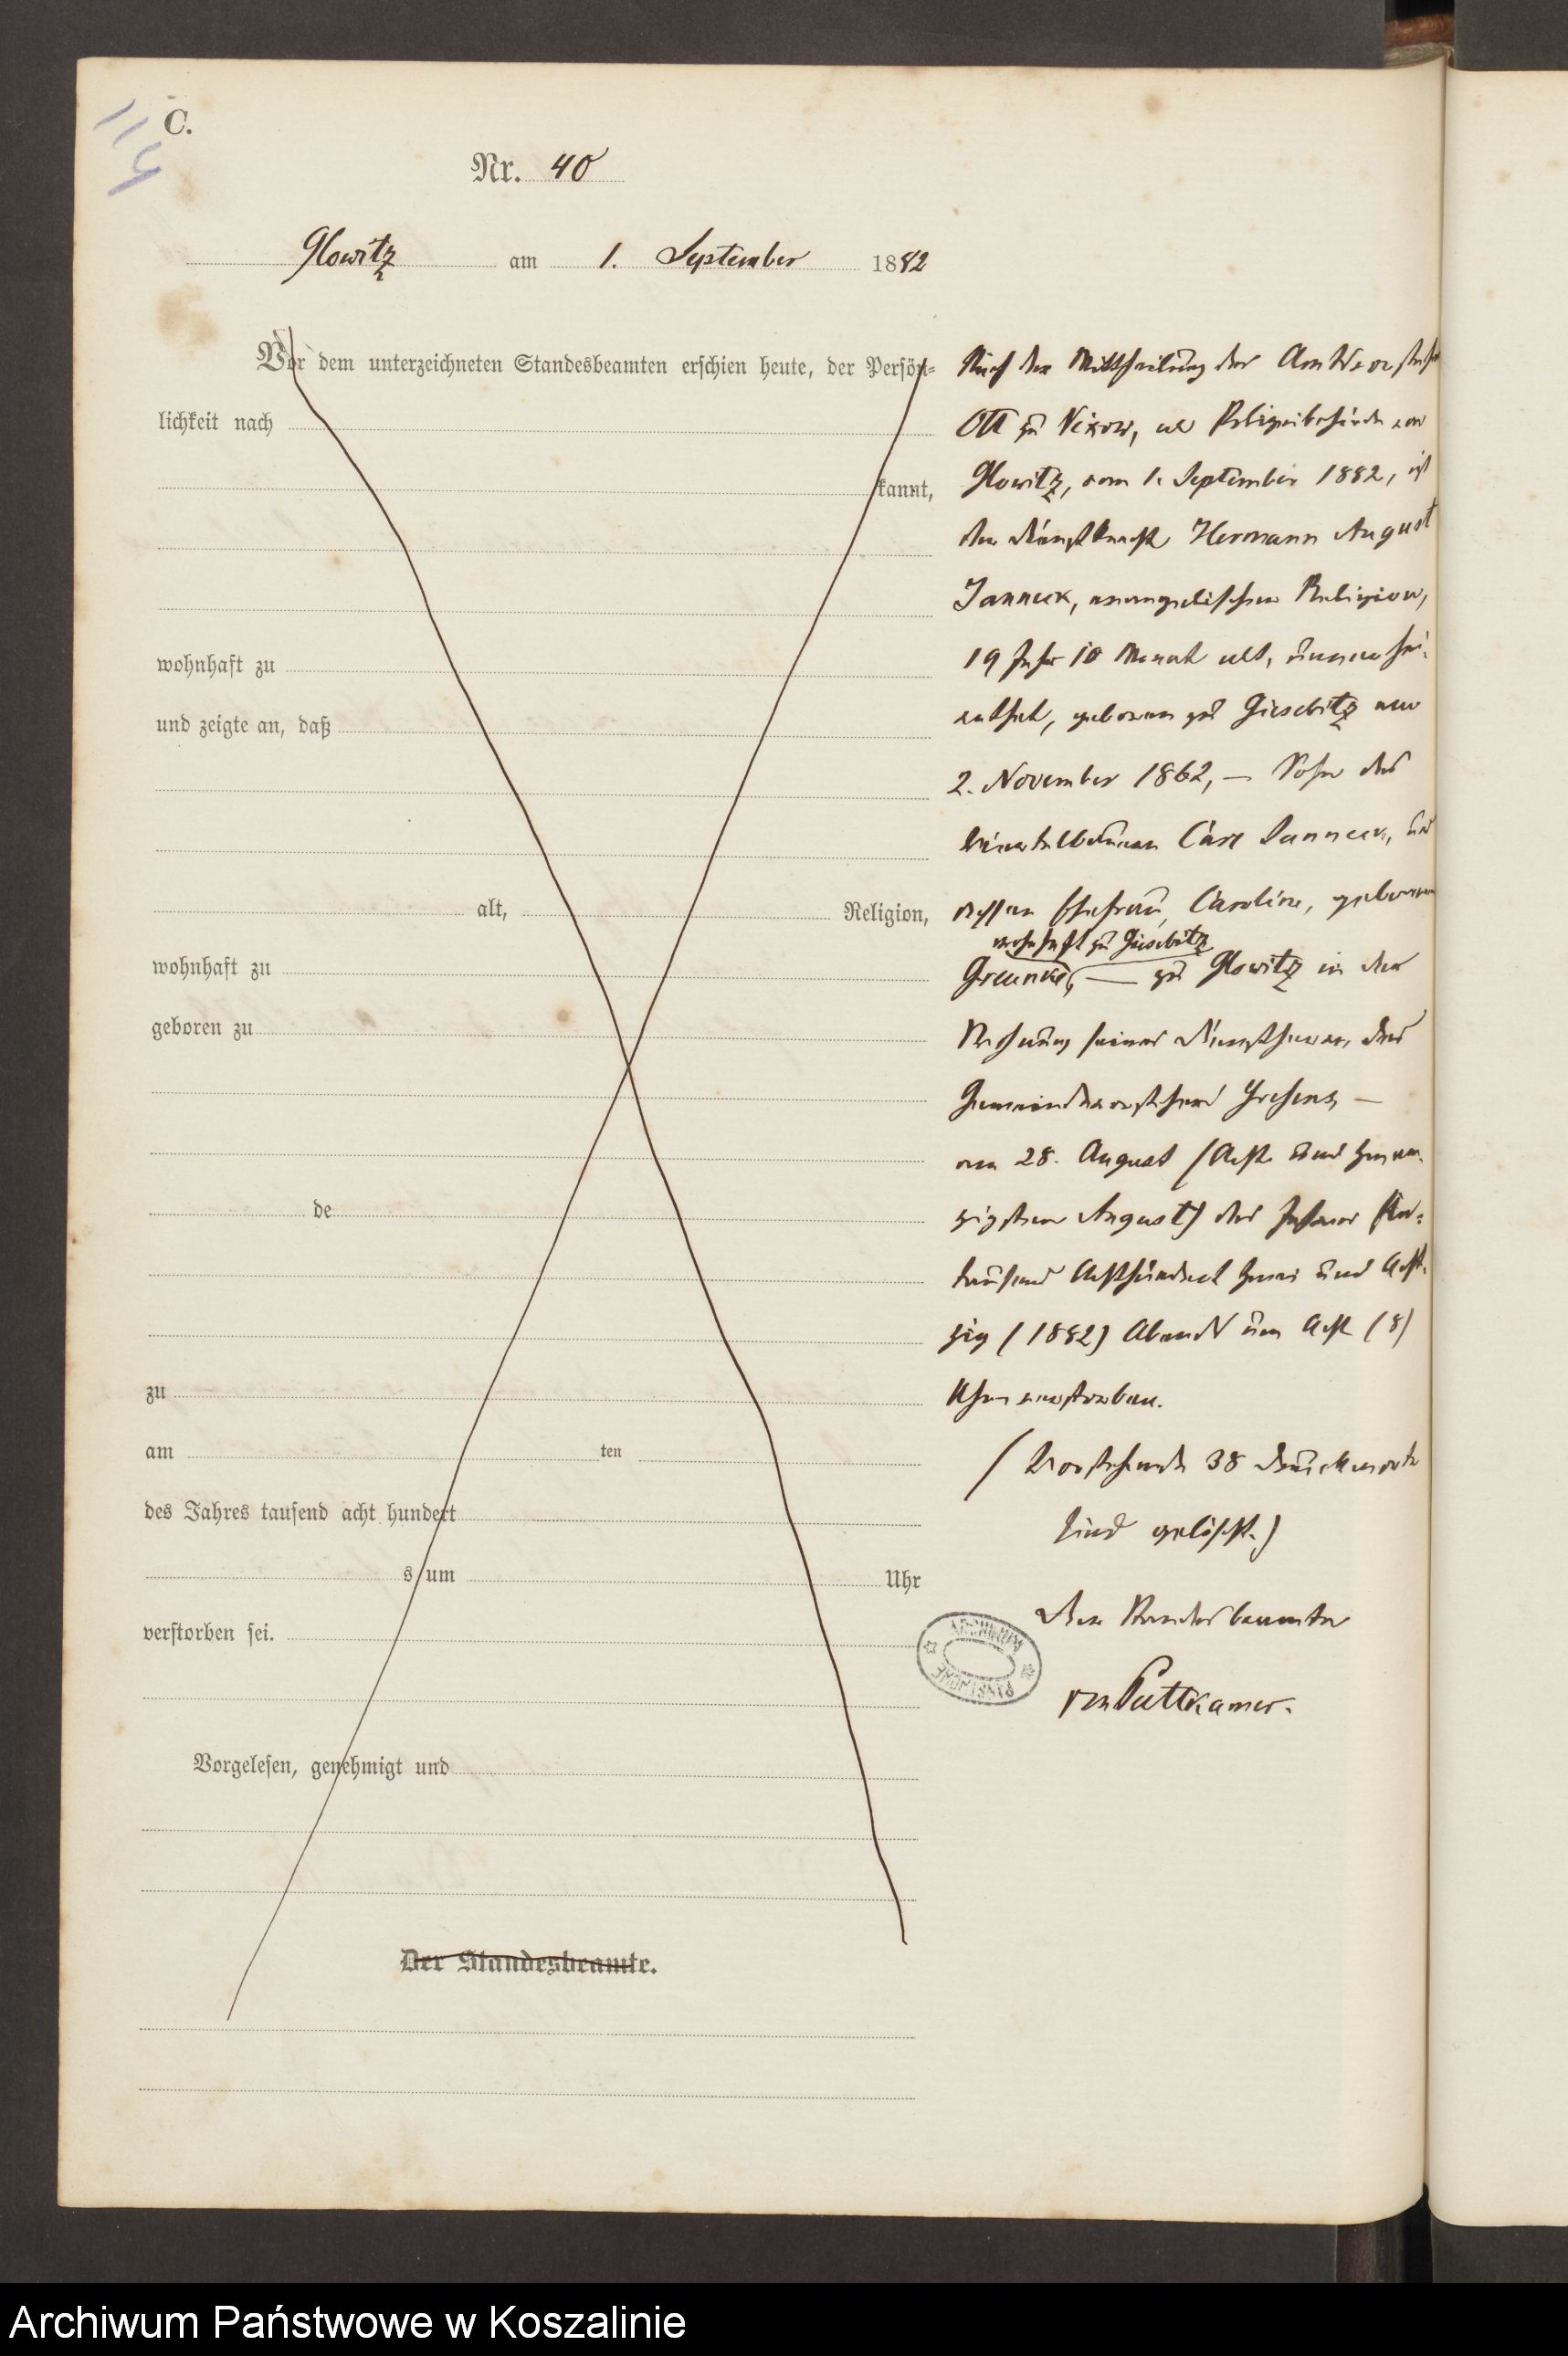 C.
Nr. 40
Glowitz am 1. September 1882
Vor dem unterzeichneten Standesbeamten erschien heute, der Persön=
lichkeit nach
kannt,
wohnhaft zu
und zeigte an, daß
alt, Religion,
wohnhaft zu
geboren zu
de
zu
am ten
des Jahres tausend acht hundert
s um Uhr
verstorben sei.
Vorgelesen, genehmigt und
Der Standesbeamte.
Nach der Mittheilung des Amtsvorstehers
Ott zu Vixow, als Polizeibehörde von
Glowitz, vom 1. September 1882, ist
der Dienstknecht Hermann August
Janneck, evangelischer Religion,
19 Jahr 10 Monat alt, unverhei-
rathet, geboren zu Giesebitz am
2. November 1862, — Sohn des
Carl Janneck, und
dessen Ehefrau, Caroline, geborenen
wohnhaft zu Giesebitz
— zu Glowitz in der
Wohnung seines Dienstherrn, des
Gemeindevorstehers —
am 28. August (Acht und zwan-
zigsten August) des Jahres Ein-
tausend Achthundert zwei und Acht-
zig (1882) Abends um Acht (8)
Uhr verstorben.
(Vorstehende 38 Druckworte
sind gelöscht.)
Der Standesbeamte
von Puttkamer.
ARCHIWUM PAŃSTWOWE
Archiwum Państwowe w Koszalinie